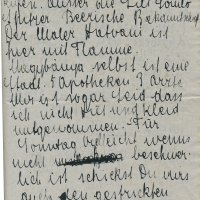 rufen. Außer die Lili Somló
Beer'sche Bekanntschaft
der Maler Hatvani ist
hier mit Flamme.
Nagybánya selbst ist eine
Stadt. 5 Apotheken 7 Ärzte
Mir ist sogar Leid dass
ich nicht Hut und Kleid
mitgenommen. Für
Sonntag vielleicht wenns
nicht beschwer-
lich ist schickst Du mirs
gestrickten